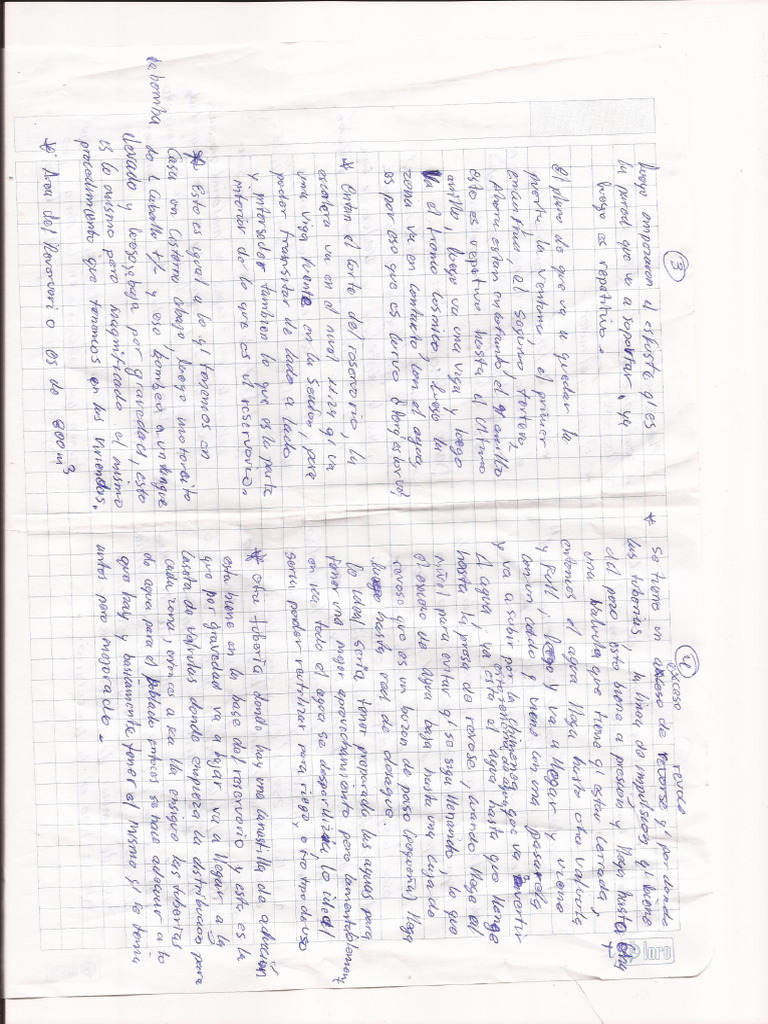 3
luego emparejan el
la pared que va a soportar, ya
luego es repetitivo.
El plano de que va a quedar la
puerta la ventana, el primer
el segundo, tercero,
ahora estan encofrando el anillo
esto es repetitivo hasta el ultimo
anillo, luego va una viga y luego
va el tronco cosnico, luego la
zona va en contacto con el agua,
es por eso que es
* Entra el corte del reservorio, la
escalera va en el nivel qi va
una viga puente en la seccion, para
poder transitar de lado a lado
y interseder tambien lo que es la parte
interior de lo que es el reservorio.
* Esto es igual a lo qi tenemos en
casa un cisterna abajo, luego motorcito
la bomba
de 1 caballo y eso bombea a un tanque
elevado y luego baja por gravedad, esto
es lo mismo pero magnificado el mismo
procedimiento que tenemos en las viviendas.
* Area del Reservorio es de 800 m3
4
exceso reboce
* Se tiene un de qi por donde
las tuberias, la linea de impulsion qi viene
del pozo esto viene a presion y llega hasta
una balvula que tiene qi estar cerrada,
entonces el agua llega hasta otra valvula
y full i luego y va a llegar y viene
con un codo y viene con una pasa
y va a subir por la chimenea que va a vertir
el agua, va esto el agua hasta que llege
hasta la presa de revose, cuando llege al
nivel para evitar qi se siga llenando, lo que
el exceso de agua baja hasta una caja de
revose que es un buzon de paso (pequeña) llega
luego hasta red de desague.
lo ideal seria tener preparado las aguas para
tener una mejor aprovechamiento pero lamentablemente
en ica todo el agua se desperdicia lo ideal
seria poder reutilizar para riego, otro tipo de uso
* otra tuberia donde hay una canastilla de
esta viene en la base del reservorio y esta es la
que por gravedad va a bajar va a llegar a la
caseta de valvulas donde empieza la distribucion para
cada zona, entonces a pa lla ensique las tuberias
de agua para el poblado entonces se hace adecuar a lo
que hay y basicamente tener el mismo qi se tenia
antes pero mejorado.
loro